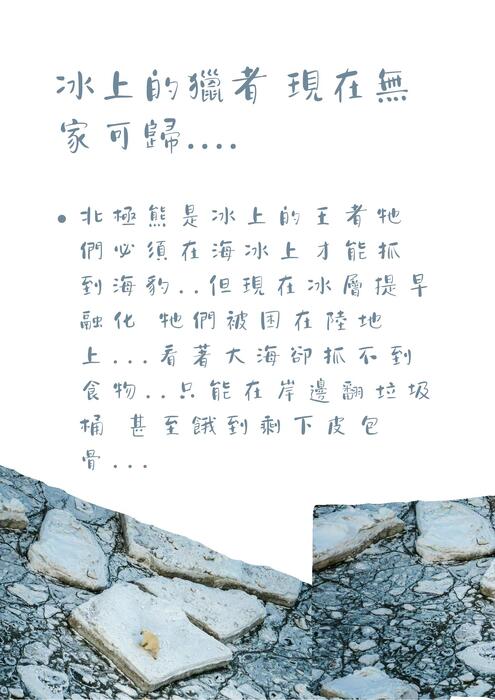 冰上的獵者 現在無
家可歸....
• 北極熊是冰上的王者牠
們必須在海冰上才能抓
到海豹..但現在冰層提早
融化 牠們被困在陸地
上...看著大海卻抓不到
食物..只能在岸邊翻垃圾
桶 甚至餓到剩下皮包
骨...